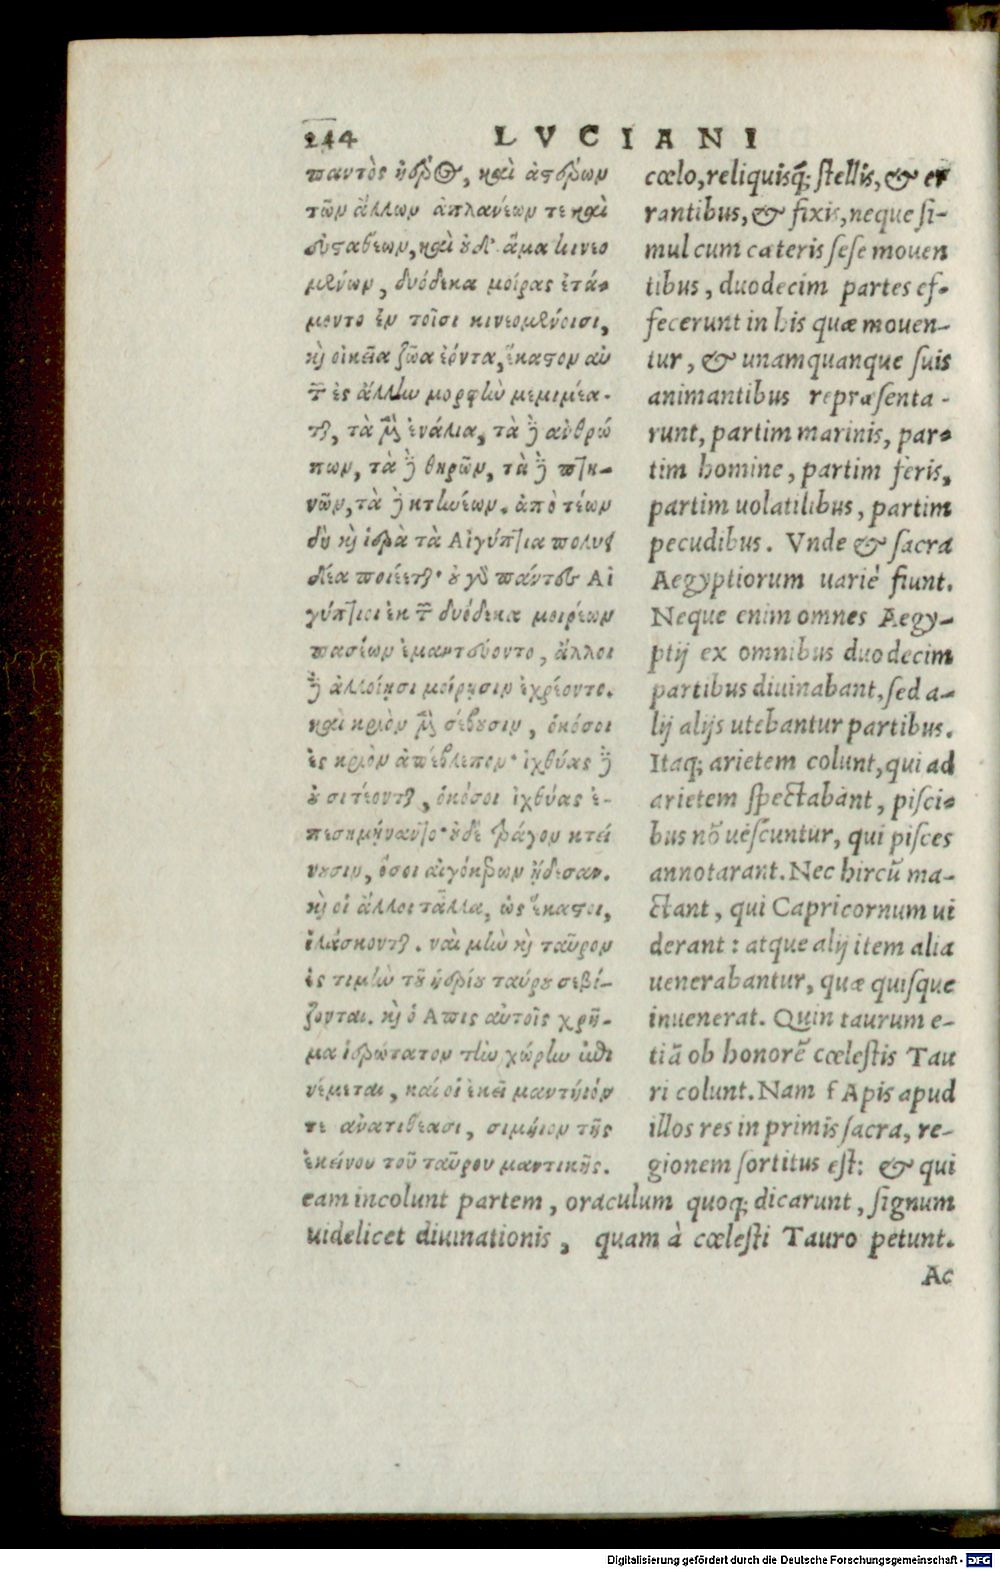 244 LVCIANI
παντὸς ἠέρος, καὶ ἀστέρων
τῶν ἄλλων ἀπλανέων τε καὶ
εὐσταθέων, καὶ οὐδ' ἅμα κινεο
μένων, δυόδεκα μοίρας ἐτά-
μοντο ἐν τοῖσι κινεομένοισι,
καὶ οἰκεῖα ζῶα ἐόντα, ἕκαστον αὐ
τῶν ἐς ἄλλην μορφὴν μεμιμέα-
ται, τὰ μὲν ἐνάλια, τὰ δὲ ἀνθρώ
πων, τὰ δὲ θηρῶν, τὰ δὲ πτη-
νῶν, τὰ δὲ κτηνέων. ἀπὸ τέων
δὴ καὶ ἱερὰ τὰ Αἰγύπτια πολυει
δέα ποιέεται· οὐ γὰρ πάντες Αἰ
γύπτιοι ἐκ τῶν δυόδεκα μοιρέων
πασέων ἐμαντεύοντο, ἄλλοι
δὲ ἀλλοίῃσι μοίρῃσιν ἐχρέοντο.
καὶ κριὸν μὲν σέβουσιν, ὁκόσοι
ἐς κριὸν ἀπέβλεπον· ἰχθύας δὲ
οὐ σιτέονται, ὁκόσοι ἰχθύας ἐ-
πεσημήναντο· οὐδὲ τράγον κτεί
νουσιν, ὅσοι αἰγόκερων ᾔδεσαν.
καὶ οἱ ἄλλοι τἄλλα, ὡς ἕκαστοι,
ἱλάσκονται. ναὶ μὴν καὶ ταῦρον
ἐς τιμὴν τοῦ ἠερίου ταύρου σεβί-
ζονται. καὶ ὁ Ἆπις αὐτοῖς χρῆ-
μα ἱερώτατον τὴν χώρην ἐπι
νέμεται, καί οἱ ἐκεῖ μαντήιόν
τε ἀνατιθέασι, σιμήιον τῆς
ἐκείνου τοῦ ταῦρου μαντικῆς.
cœlo, reliquisq; stellis, & er
rantibus, & fixis, neque si-
mul cum cæteris sese mouen
tibus, duodecim partes ef-
fecerunt in his quæ mouen-
tur, & unamquanque suis
animantibus repræsenta-
runt, partim marinis, par-
tim homine, partim feris,
partim uolatilibus, partim
pecudibus. Vnde & sacra
Aegyptiorum uariè fiunt.
Neque enim omnes Aegy-
ptij ex omnibus duodecim
partibus diuinabant, sed a-
lij alijs utebantur partibus.
Itaq; arietem colunt, qui ad
arietem spectabant, pisci-
bus nõ uescuntur, qui pisces
annotarant. Nec hircũ ma-
ctant, qui Capricornum ui
derant: atque alij item alia
uenerabantur, quæ quisque
inuenerat. Quin taurum e-
tiã ob honorẽ cœlestis Tau
ri colunt. Nam & Apis apud
illos res in primis sacra, re-
gionem sortitus est: & qui
eam incolunt partem, oraculum quoq; dicarunt, signum
uidelicet diuinationis, quam à cœlesti Tauro petunt.
Ac
Digitalisierung gefördert durch die Deutsche Forschungsgemeinschaft - DFG